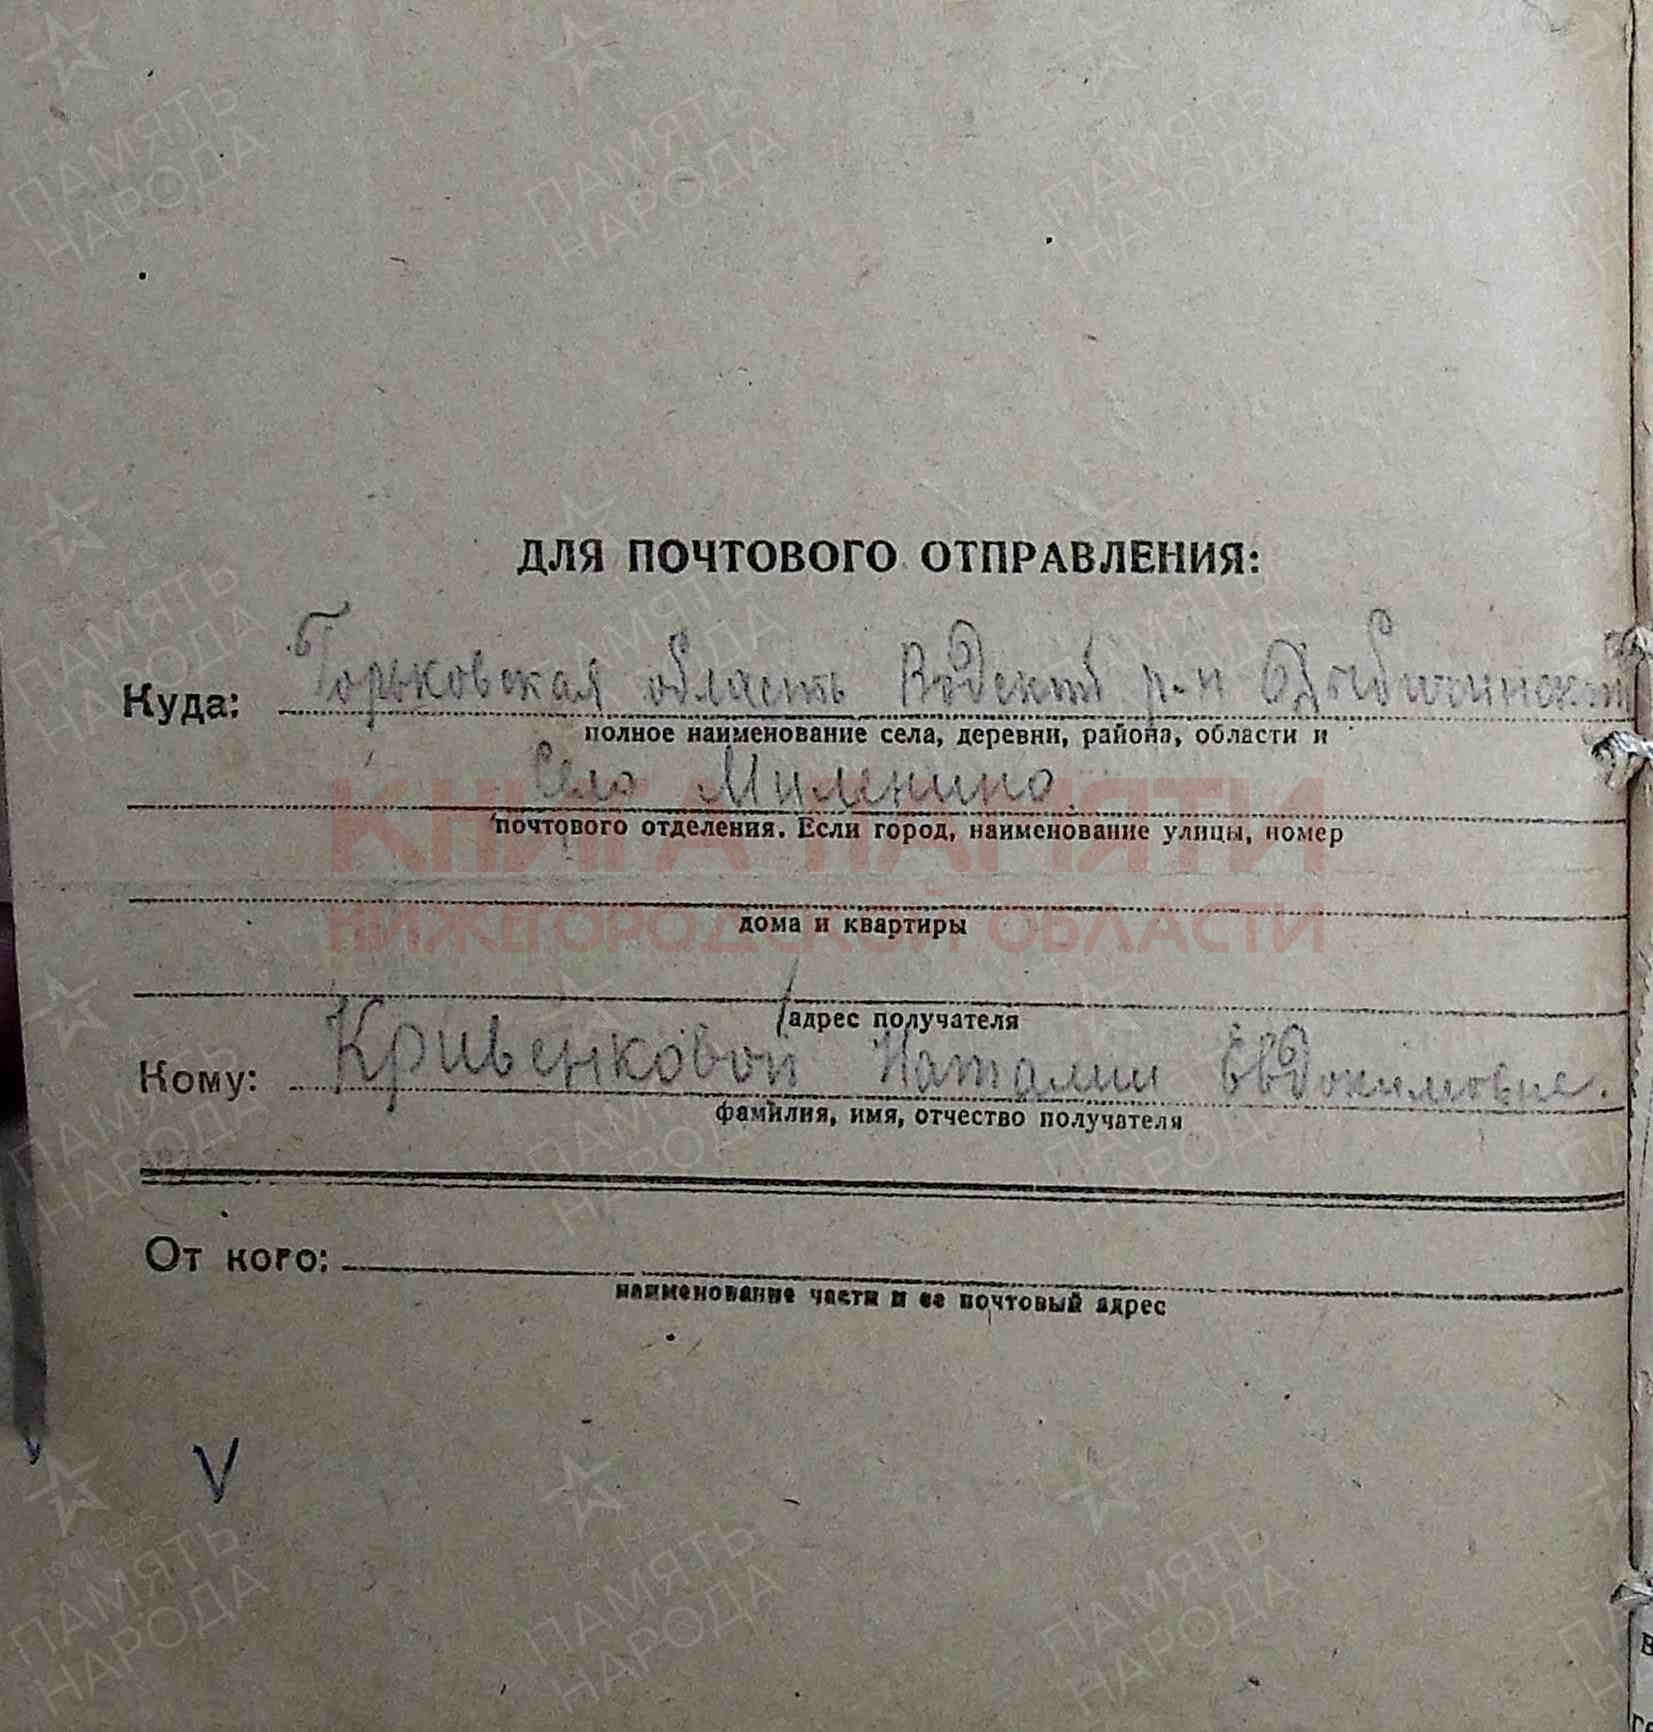 ДЛЯ ПОЧТОВОГО ОТПРАВЛЕНИЯ:
Куда: Горьковская область р-н
полное наименование села, деревни, района, области и
Село Миленино
почтового отделения. Если город, наименование улицы, номер
КНИГА ПАМЯТИ
дома и квартиры
НИЖЕГОРОДСКОЙ ОБЛАСТИ
адрес получателя
Кому: Кривенковой Наталии Евдокимовне.
фамилия, имя, отчество получателя
От кого:
наименование части и ее почтовый адрес
V
ПАМЯТЬ
НАРОДА